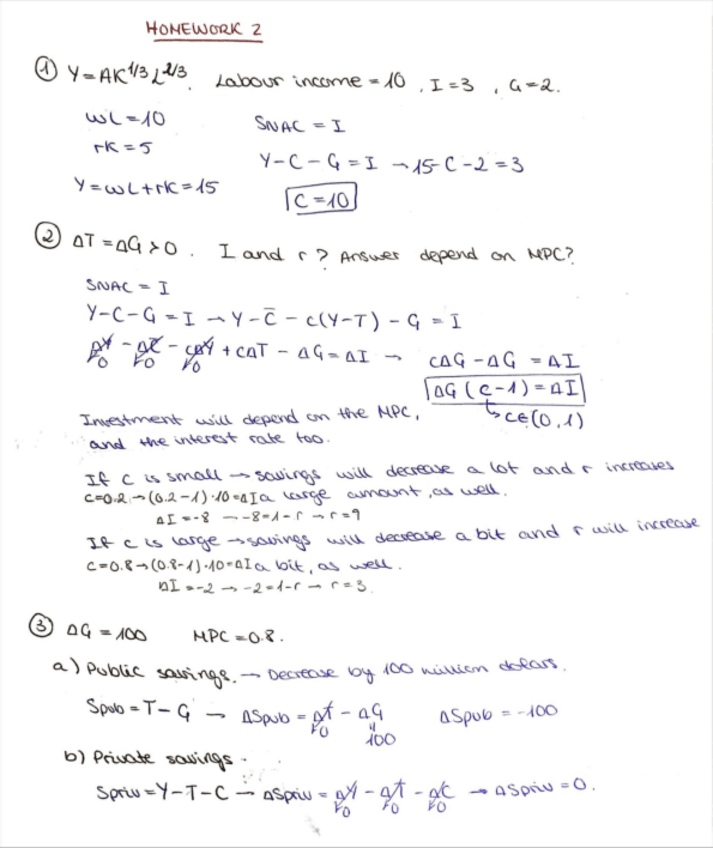 HOMEWORK 2
① Y=AK^1/3 L^2/3. Labour income = 10, I=3, G=2.
wL=10
SNAC = I
rK=5
Y-C-G=I → 15-C-2=3
Y=wL+rK=15
C=10
② ΔT=ΔG>0. I and r? Answer depend on MPC?
SNAC = I
Y-C-G=I → Y-C̄-c(Y-T)-G=I
ΔY - ΔC̄ - cΔY + cΔT - ΔG = ΔI → cΔG-ΔG = ΔI
↳0 ↳0 ↳0
ΔG(c-1)=ΔI
↳ c∈(0,1)
Investment will depend on the MPC,
and the interest rate too.
If c is small → savings will decrease a lot and r increases
c=0.2 → (0.2-1)·10=ΔI a large amount, as well.
ΔI=-8 → -8=1-r → r=9
If c is large → savings will decrease a bit and r will increase
c=0.8 → (0.8-1)·10=ΔI a bit, as well.
ΔI=-2 → -2=1-r → r=3.
③ ΔG=100 MPC=0.8.
a) Public savings. → Decrease by 100 million dollars.
Spub=T-G → ΔSpub = ΔT - ΔG ΔSpub = -100
↳0 100
b) Private savings.
Spriv=Y-T-C → ΔSpriv = ΔY - ΔT - ΔC → ΔSpriv=0.
↳0 ↳0 ↳0